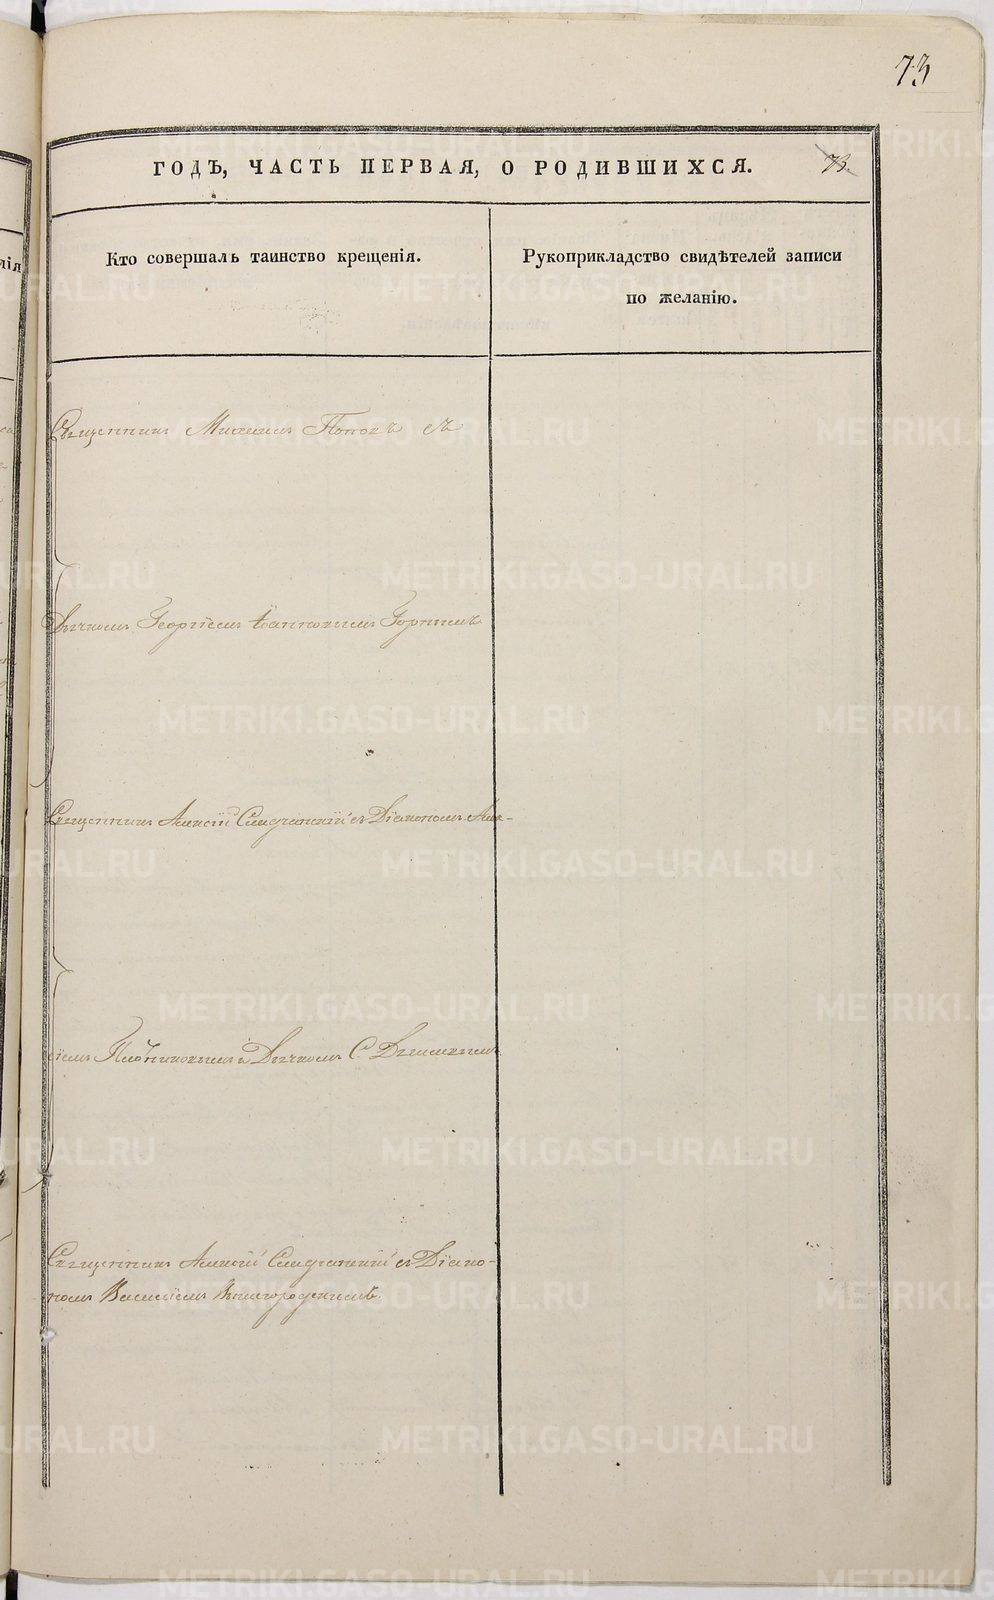 73
ГОДЪ, ЧАСТЬ ПЕРВАЯ, О РОДИВШИХСЯ.
73.
Кто совершалъ таинство крещенія.
Рукоприкладство свидѣтелей записи
по желанію.
Священникъ Михаилъ Поповъ съ
Дьячкомъ Георгіемъ Іоанновымъ Горнымъ
Священникъ Алексій съ Діакономъ
и Дьячкомъ С.
Священникъ Алексій съ Діако-
номъ Василіемъ
METRIKI.GASO-URAL.RU